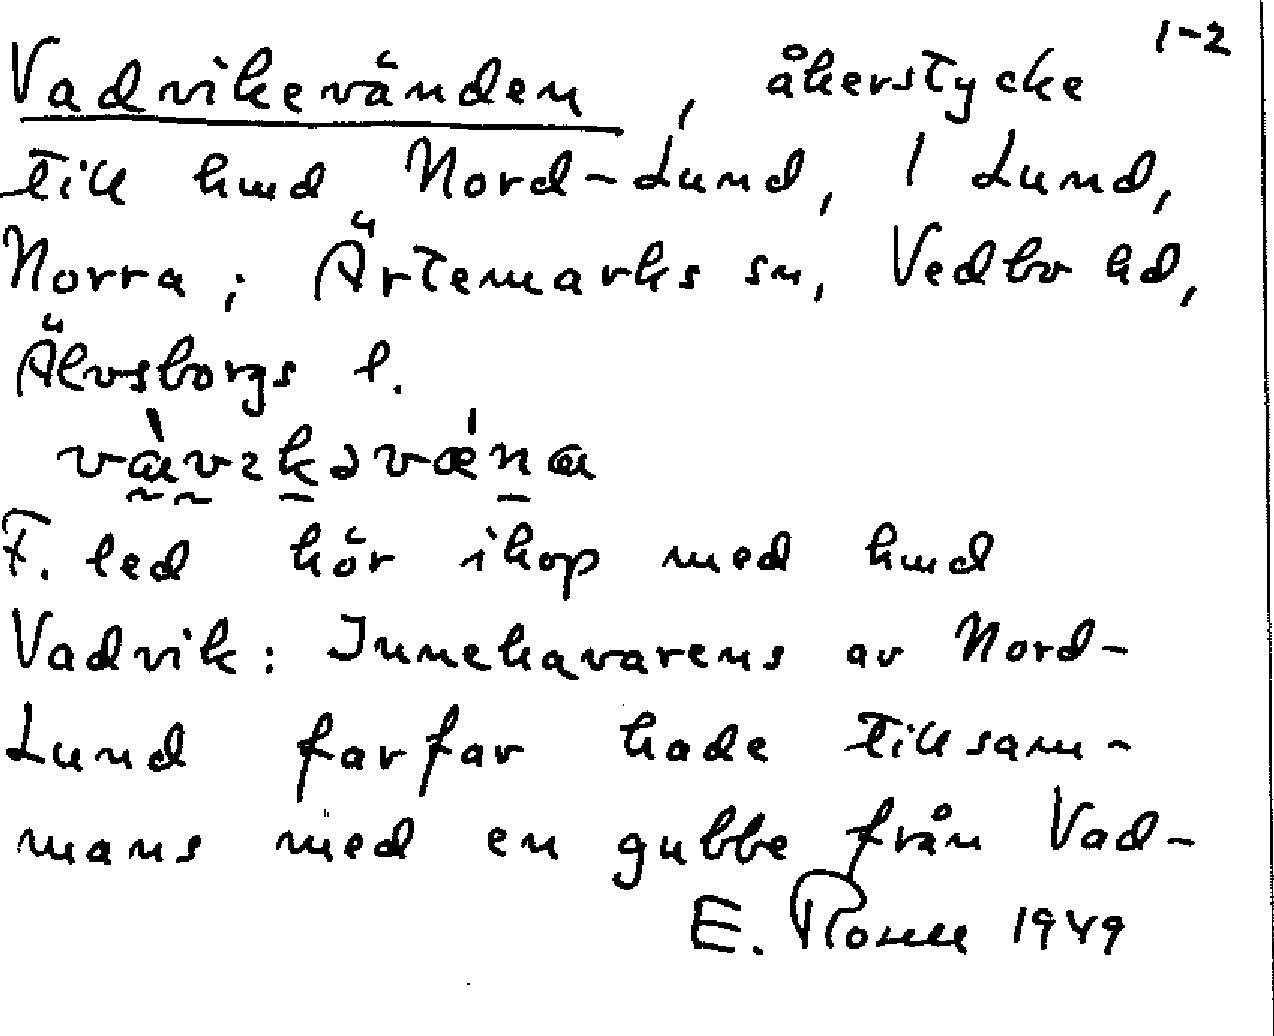 1-2
Vadvikevänden, åkerstycke
till hmd Nord-Lund, 1 Lund,
Norra; Ärtemarks sn, Vedbo hd,
Älvsborgs l.
F. led hör ihop med hmd
Vadvik: Innehavarens av Nord-
Lund farfar hade tillsam-
mans med en gubbe från Vad-
E. 1949